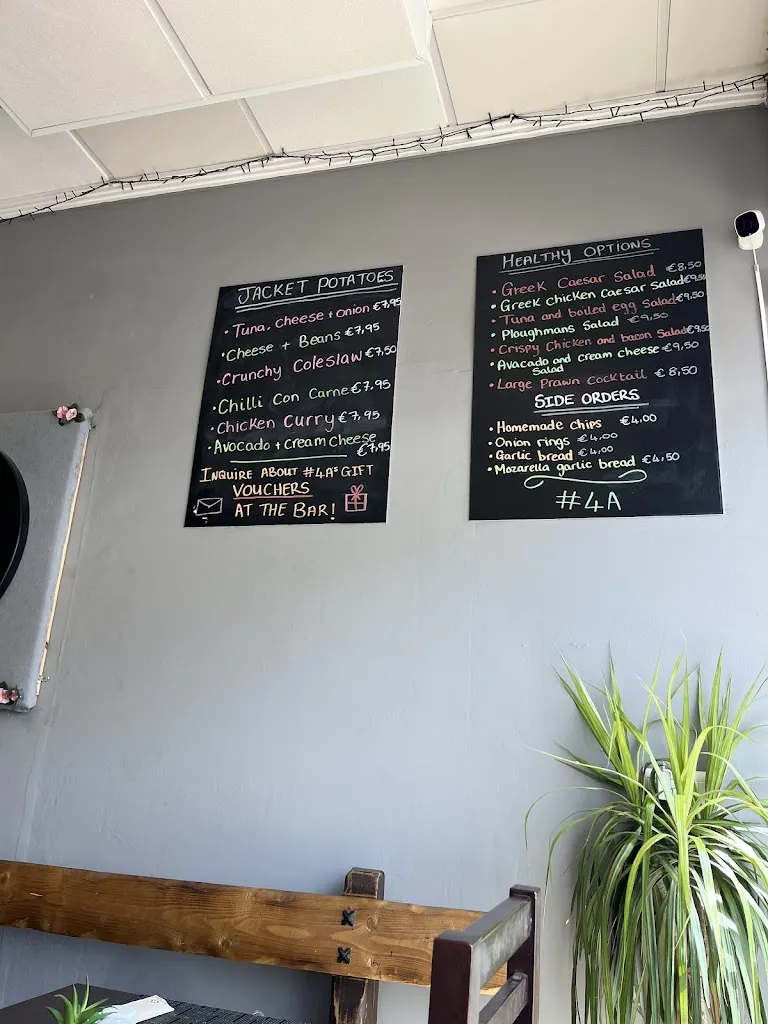 JACKET POTATOES
• Tuna, Cheese + onion €7,95
• Cheese + Beans €7,95
• Crunchy Coleslaw €7,50
• Chilli Con Carne €7,95
• Chicken Curry €7,95
• Avocado + cream cheese
€7,95
INQUIRE ABOUT #4A's GIFT
VOUCHERS
AT THE BAR!
HEALTHY OPTIONS
• Greek Caesar Salad €8,50
• Greek chicken Caesar Salad €9,50
• Tuna and boiled egg Salad €9,50
• Ploughmans Salad €9,50
• Crispy Chicken and bacon Salad €9,50
• Avacado and cream cheese €9,50
Salad
• Large Prawn Cocktail €8,50
SIDE ORDERS
• Homemade chips €4,00
• Onion rings €4,00
• Garlic bread €4,00
• Mozarella garlic bread €4,50
#4A